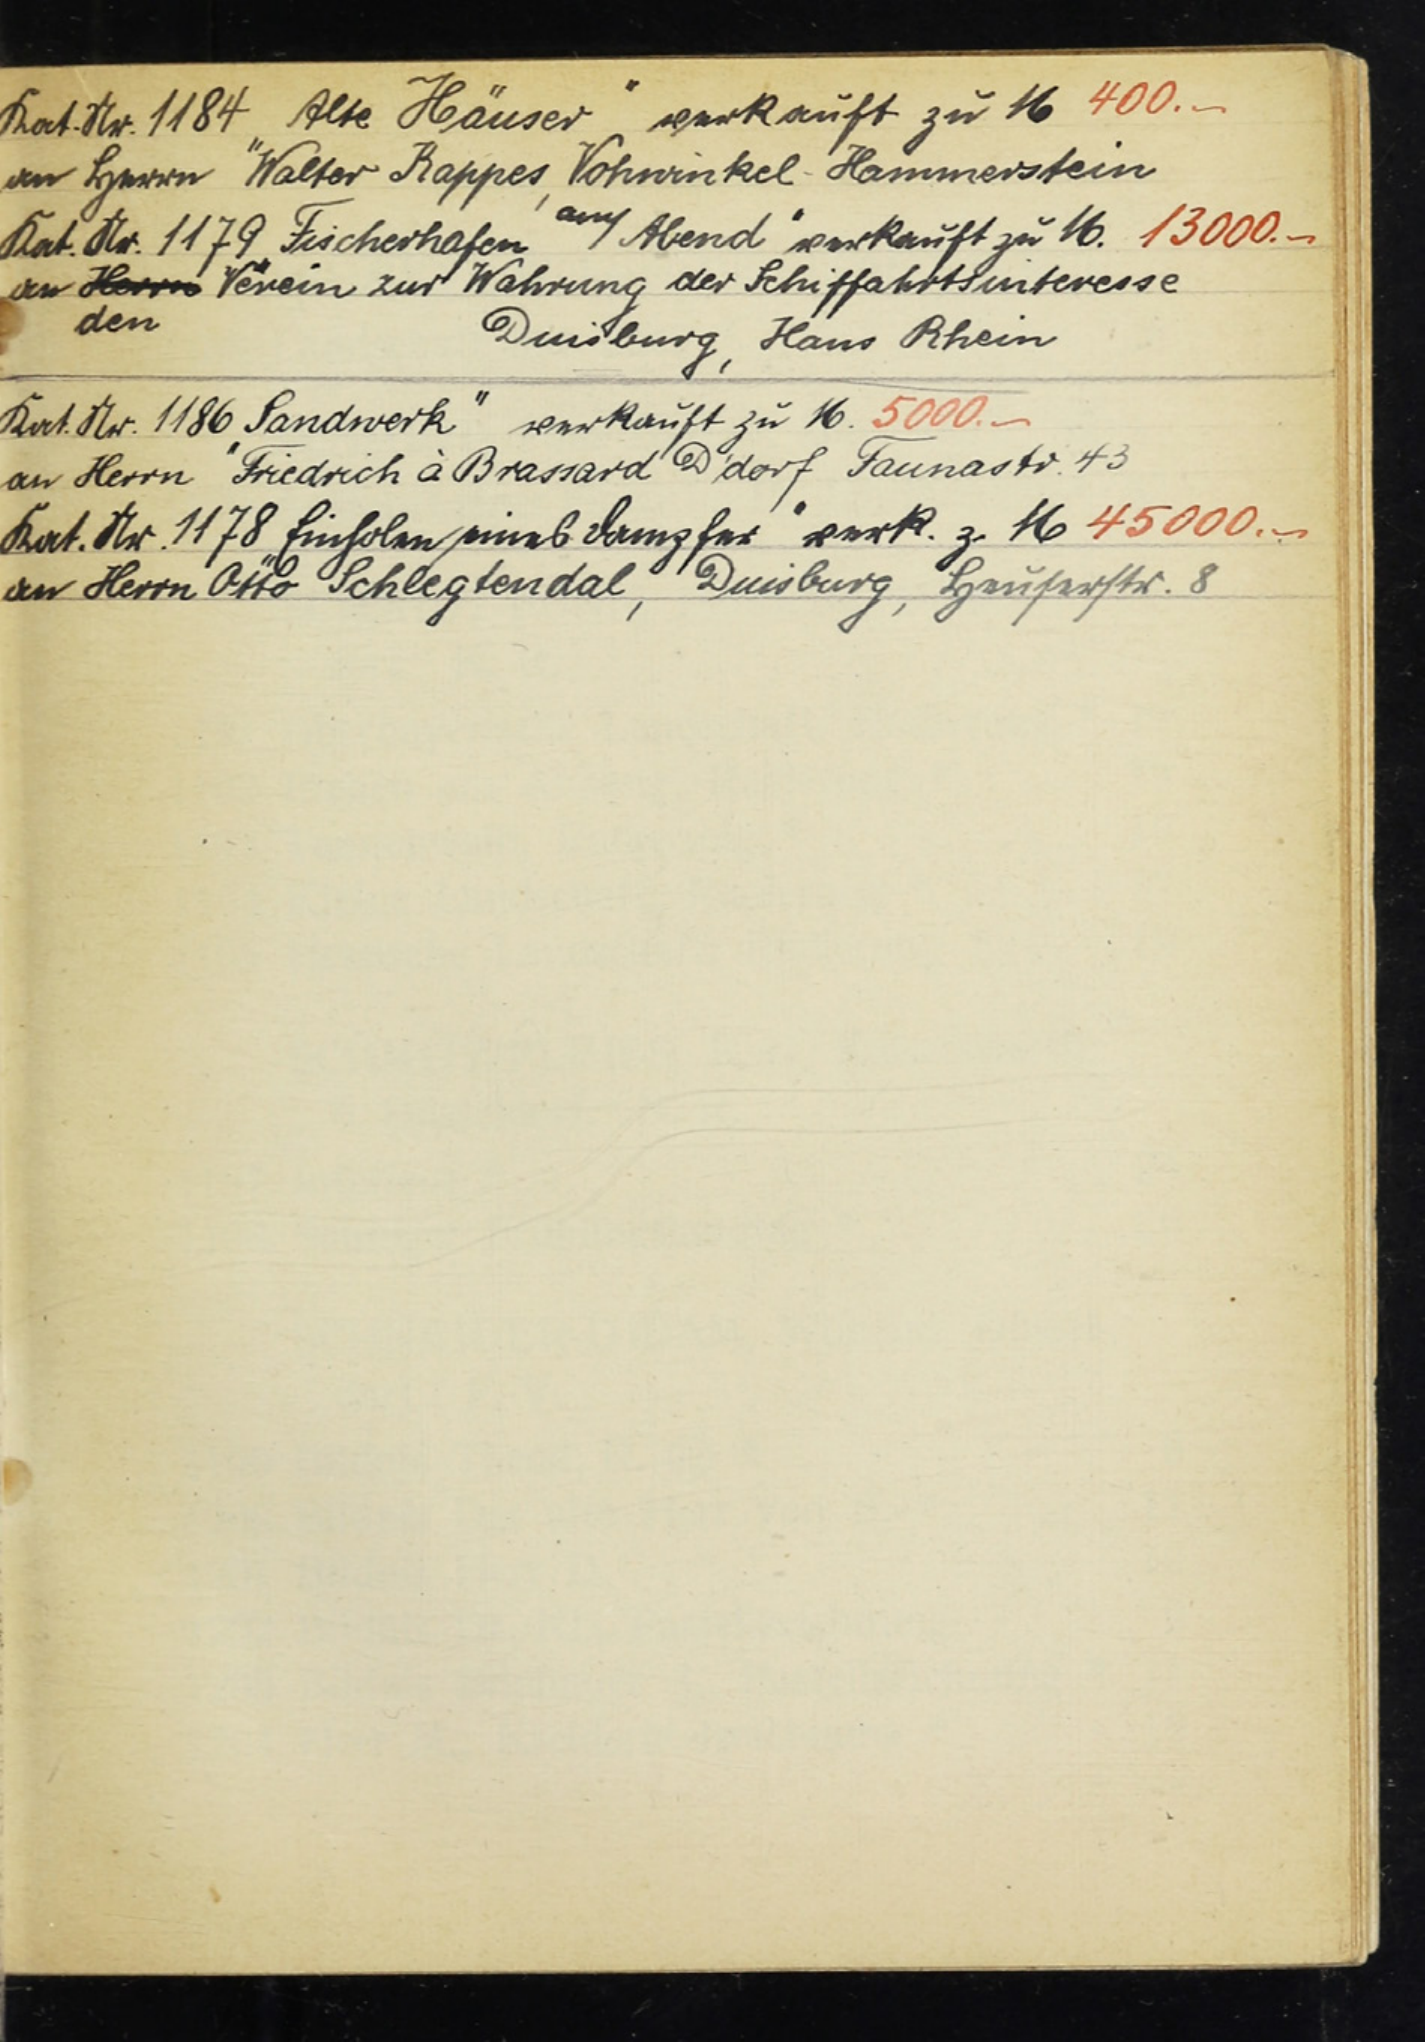 Kat. Nr. 1184 „Alte Häuser" verkauft zu M 400.—
an Herrn Walter Kappes, Vohwinkel-Hammerstein
Kat. Nr. 1179 „Fischerhafen am Abend" verkauft zu M. 13000.—
an Herrn Verein zur Wahrung der Schiffahrtsinteresse
den Duisburg, Haus Rhein
Kat. Nr. 1186 „Sandwerk" verkauft zu M. 5000.—
an Herrn Friedrich à Brassard D'dorf Taunastr. 43
Kat. Nr. 1178 „Einholen eines Dampfer" verk. z. M 45000.—
an Herrn Otto Schlegtendal, Duisburg, Heuserstr. 8